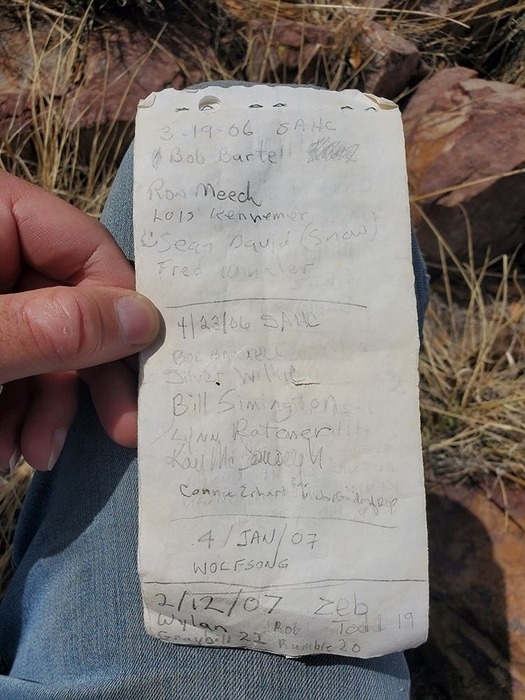 3-19-06 SAHC
Bob Bartel
Ron Meech
Lois Kennemer
Sean David (Snow)
Fred Winkler
4/22/06 SAHC
Silver Willye
Bill Simington
Lynn Rotener
Connie Erhart for
4/JAN/07
WOLFSONG
2/12/07 Zeb
Wylan Rob Todd 19
Graybill 22 Rumble 20